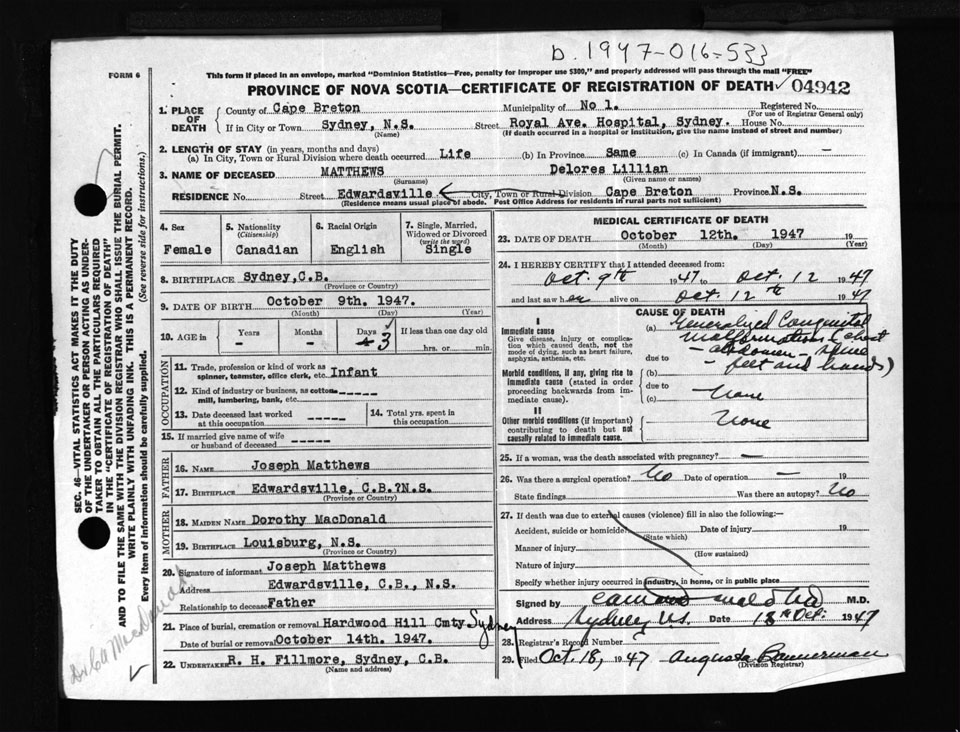 b. 1947-016-533
FORM 6
This form if placed in an envelope, marked "Dominion Statistics—Free, penalty for improper use $300," and properly addressed will pass through the mail "FREE"
PROVINCE OF NOVA SCOTIA—CERTIFICATE OF REGISTRATION OF DEATH ✓ 04942
1. PLACE OF DEATH
County of Cape Breton Municipality of No 1. Registered No.
(For use of Registrar General only)
If in City or Town Sydney, N.S. Street Royal Ave. Hospital, Sydney. House No.
(Name) (If death occurred in a hospital or institution, give the name instead of street and number)
2. LENGTH OF STAY (in years, months and days)
(a) In City, Town or Rural Division where death occurred Life (b) In Province Same (c) In Canada (if immigrant) —
3. NAME OF DECEASED MATTHEWS Delores Lillian
(Surname) (Given name or names)
RESIDENCE No. Street Edwardsville City, Town or Rural Division Cape Breton Province N.S.
(Residence means usual place of abode. Post Office Address for residents in rural parts not sufficient)
4. Sex
Female
5. Nationality
(Citizenship)
Canadian
6. Racial Origin
English
7. Single, Married, Widowed or Divorced
(write the word)
Single
8. BIRTHPLACE Sydney, C.B.
(Province or Country)
9. DATE OF BIRTH October 9th. 1947.
(Month) (Day) (Year)
10. AGE in Years Months Days If less than one day old
- - 3 hrs. or min.
OCCUPATION
11. Trade, profession or kind of work as spinner, teamster, office clerk, etc. Infant
12. Kind of industry or business, as cotton mill, lumbering, bank, etc. -----
13. Date deceased last worked at this occupation -----
14. Total yrs. spent in this occupation
15. If married give name of wife or husband of deceased -----
FATHER
16. NAME Joseph Matthews
17. BIRTHPLACE Edwardsville, C.B.?N.S.
MOTHER
18. MAIDEN NAME Dorothy MacDonald
19. BIRTHPLACE Louisburg, N.S.
(Province or Country)
20. Signature of informant Joseph Matthews
Address Edwardsville, C.B., N.S.
Relationship to deceased Father
21. Place of burial, cremation or removal Hardwood Hill Cmty. Sydney
Date of burial or removal October 14th. 1947.
22. UNDERTAKER R. H. Fillmore, Sydney, C.B.
(Name and address)
MEDICAL CERTIFICATE OF DEATH
23. DATE OF DEATH October 12th. 1947 19
(Month) (Day) (Year)
24. I HEREBY CERTIFY that I attended deceased from:
Oct. 9th 1947 to Oct. 12 1947
and last saw her alive on Oct. 12th 1947
CAUSE OF DEATH
I
Immediate cause
Give disease, injury or complication which caused death, not the mode of dying, such as heart failure, asphyxia, asthenia, etc.
(a) Generalized Congenital
malformations (chest
due to - abdomen - spine
feet and hands)
Morbid conditions, if any, giving rise to immediate cause (stated in order proceeding backwards from immediate cause).
(b)
due to
(c) None
II
Other morbid conditions (if important) contributing to death but not causally related to immediate cause.
None
25. If a woman, was the death associated with pregnancy? —
26. Was there a surgical operation? No Date of operation — 19
State findings Was there an autopsy? No
27. If death was due to external causes (violence) fill in also the following:—
Accident, suicide or homicide? Date of injury 19
(State which)
Manner of injury
(How sustained)
Nature of injury
Specify whether injury occurred in industry, in home, or in public place
Signed by M.D.
Address Sydney N.S. Date Oct. 1947
28. Registrar's Record Number
29. Filed Oct. 18, 1947 Augusta Bannerman
(Division Registrar)
SEC. 46—VITAL STATISTICS ACT MAKES IT THE DUTY
OF THE UNDERTAKER OR PERSON ACTING AS UNDERTAKER
TO OBTAIN ALL THE PARTICULARS REQUIRED
IN THE "CERTIFICATE OF REGISTRATION OF DEATH"
AND TO FILE THE SAME WITH THE DIVISION REGISTRAR WHO SHALL ISSUE THE BURIAL PERMIT.
WRITE PLAINLY WITH UNFADING INK. THIS IS A PERMANENT RECORD.
Every item of information should be carefully supplied. (See reverse side for instructions.)